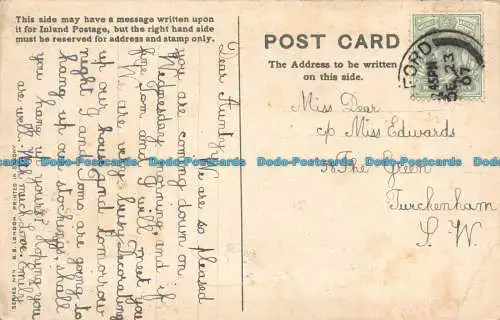 This side may have a message written upon
it for Inland Postage, but the right hand side
must be reserved for address and stamp only.
POST CARD
The Address to be written
on this side.
FORD
4 45PM
DE 23
07
Dear Aunty We are so pleased
you are coming down on
Wednesday morning, and if
fine Tom and I will meet you
We are very busy Decorating
up our house and tomorrow
night I and Tom are going to
hang up our stockings shall
you hang up yours? hoping you
are well. With much love. Emily
Miss Dear
c/o Miss Edwards
The Green
Twickenham
S. W.
Dodo-Postcards Dodo-Postcards Dodo-Postcards Dodo-Postcards